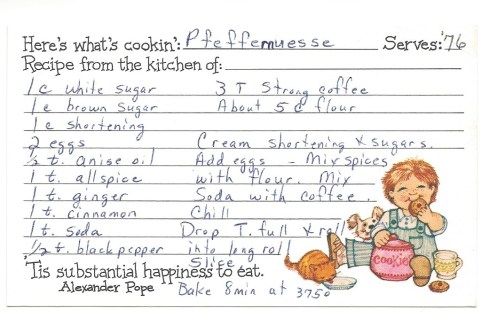 Here's what's cookin': Pfeffernuesse Serves: '76
Recipe from the kitchen of:
1 c white sugar 3 T Strong coffee
1 c brown sugar About 5 c flour
1 c shortening
2 eggs Cream shortening & sugars.
½ t. anise oil Add eggs - Mix spices
1 t. allspice with flour. Mix
1 t. ginger Soda with coffee.
1 t. cinnamon Chill
1 t. soda Drop T. full & roll
1/2 t. black pepper into long roll
Slice
'Tis substantial happiness to eat.
Alexander Pope Bake 8 min at 375°
COOKIES